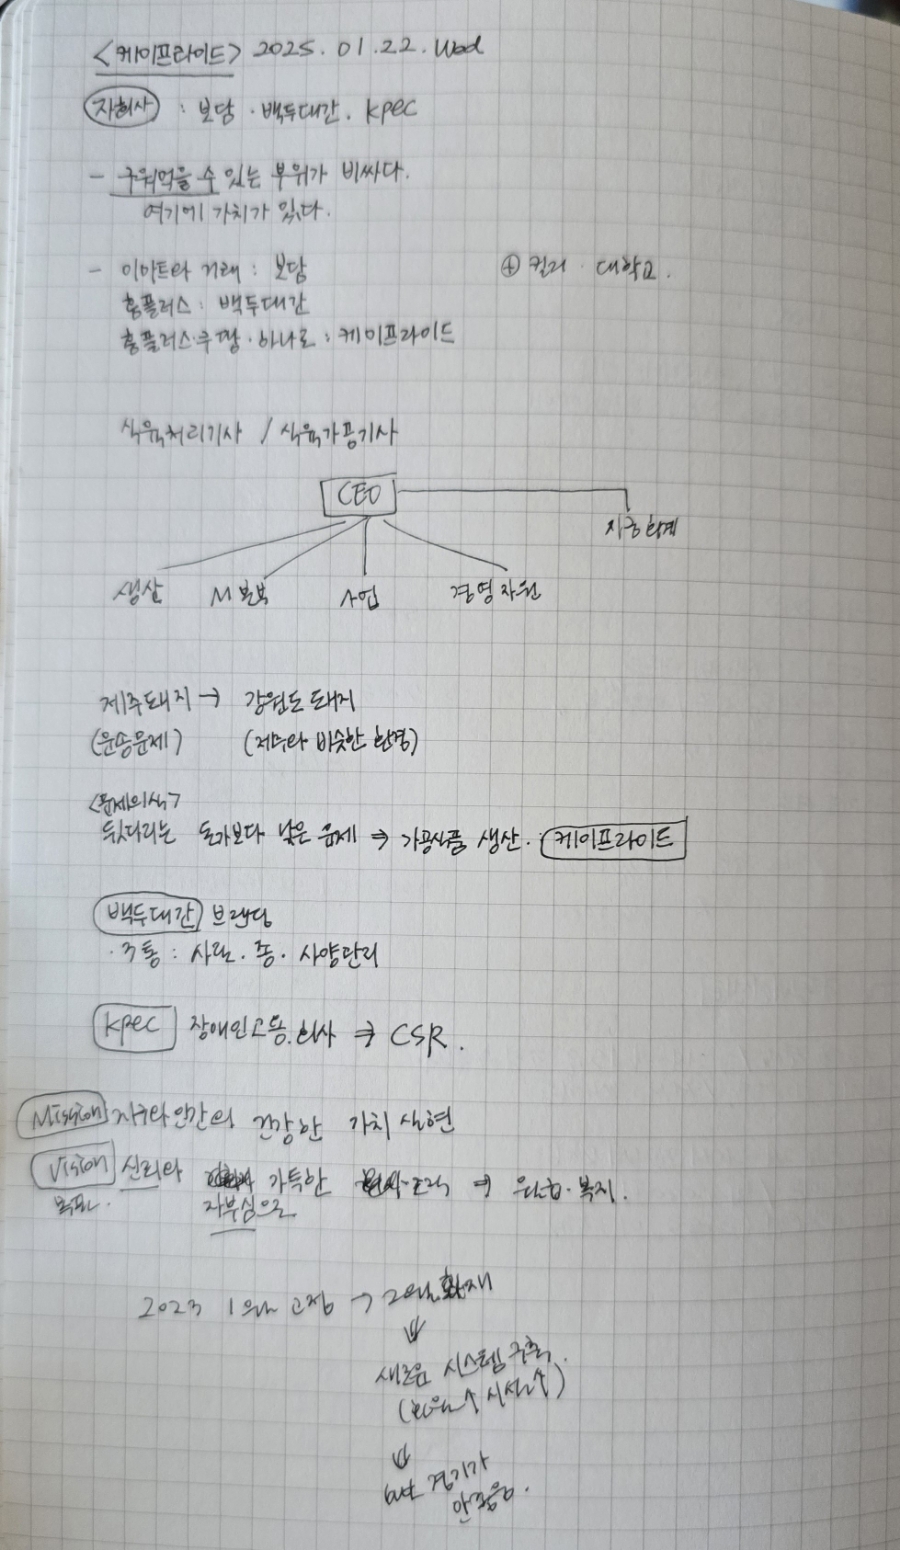 <케이프라이드> 2025. 01. 22. Wed
자회사 : 보담 · 백두대간 · kpec
- 구워먹을 수 있는 부위가 비싸다.
여기에 가치가 있다.
- 이마트와 거래 : 보담 ⊕ 컬리 · 대학교.
홈플러스 : 백두대간
홈플러스·쿠팡·하나로 : 케이프라이드
식육처리기사 / 식육가공기사
CEO
생산 M본부 사업 경영자원
제주돼지 → 강원도 돼지
(운송문제) (제주와 비슷한 환경)
<문제의식>
뒷다리는 돈가보다 낮은 문제 ⇒ 가공식품 생산. 케이프라이드
백두대간 브랜딩
· 3통 : 사료 · 종 · 사양관리
kpec 장애인고용.회사 ⇒ CSR.
Mission 지구와 인간의 건강한 가치 실현
Vision 신뢰와 가득한 조직 ⇒ 복지.
자부심으로
2023 1월 → 2월 화재
⇓
새로운 시스템 구축.
(효율↑ 시선↑)
⇓
but 경기가
안좋음.